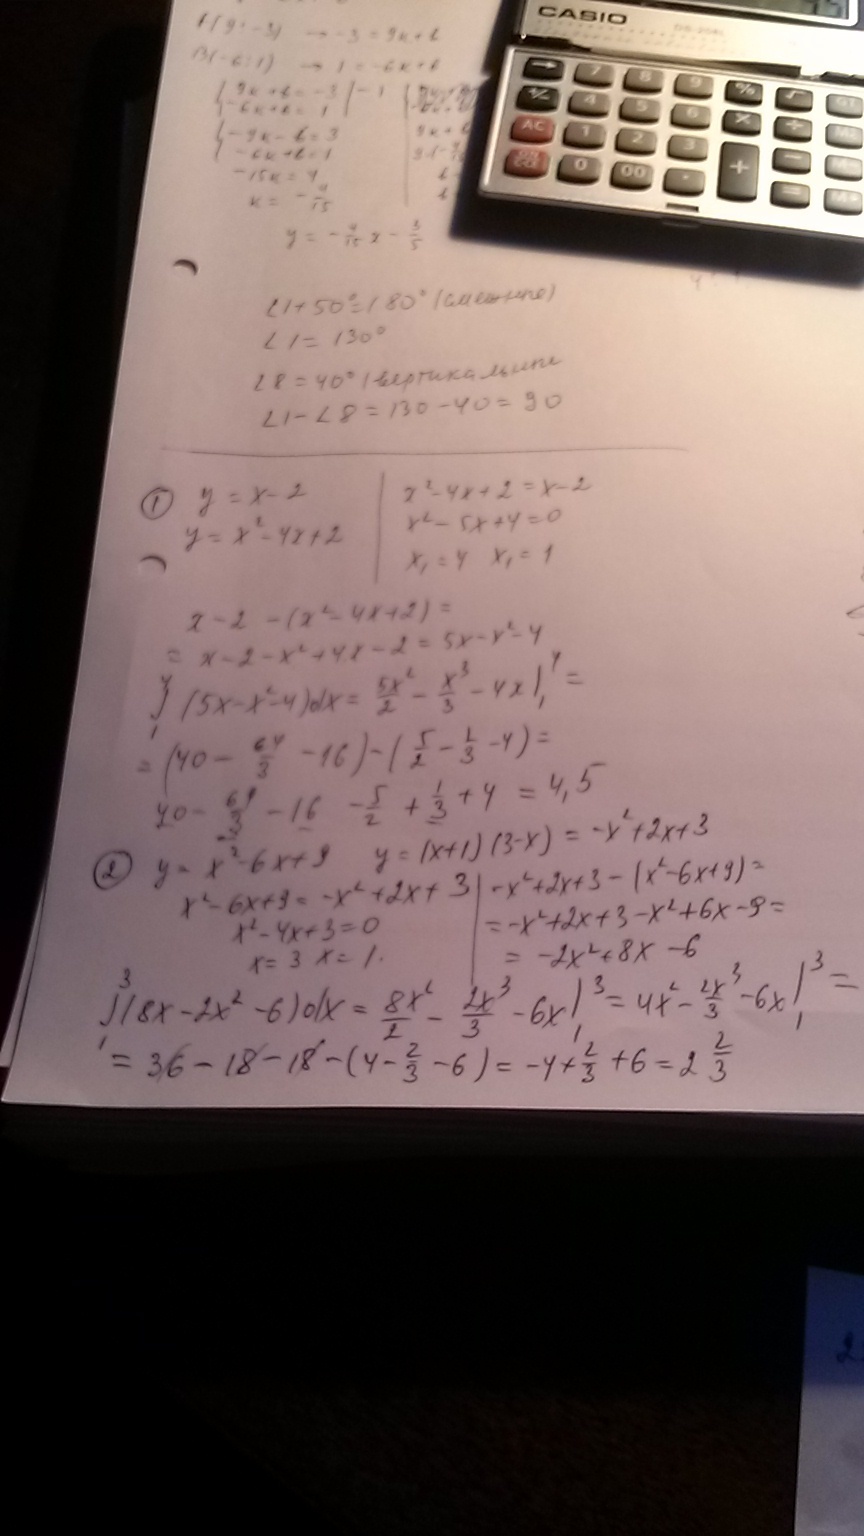 CASIO
A(9;-3) → -3 = 9k+b
B(-6;1) → 1 = -6k+b
{ 9k+b = -3 | -1
{ -6k+b = 1
{ -9k-b = 3
{ -6k+b = 1
-15k = 4
k = -4/15
y = -4/15 x - 3/5
∠1+50°=180° (смежные)
∠1 = 130°
∠8 = 40° (вертикальные
∠1-∠8 = 130-40 = 90
① y = x-2 | x²-4x+2 = x-2
y = x²-4x+2 | x²-5x+4=0
x₁=4 x₁=1
x-2 -(x²-4x+2) =
= x-2-x²+4x-2 = 5x-x²-4
∫₁⁴ (5x-x²-4)dx = 5x²/2 - x³/3 - 4x |₁⁴ =
= (40 - 64/3 - 16) - (5/2 - 1/3 - 4) =
40 - 64/3 - 16 - 5/2 + 1/3 + 4 = 4,5
② y = x²-6x+9 y = (x+1)(3-x) = -x²+2x+3
x²-6x+9 = -x²+2x+3 | -x²+2x+3-(x²-6x+9)=
x²-4x+3=0 | =-x²+2x+3-x²+6x-9=
x=3 x=1. | = -2x²+8x-6
∫₁³ (8x-2x²-6)dx = 8x²/2 - 2x³/3 - 6x |₁³ = 4x² - 2x³/3 - 6x |₁³ =
= 36-18-18-(4-2/3-6) = -4+2/3+6 = 2 2/3
→ 7 8 9 % √
+/- 4 5 6 × ÷
AC 1 2 3 + −
0 00 · =